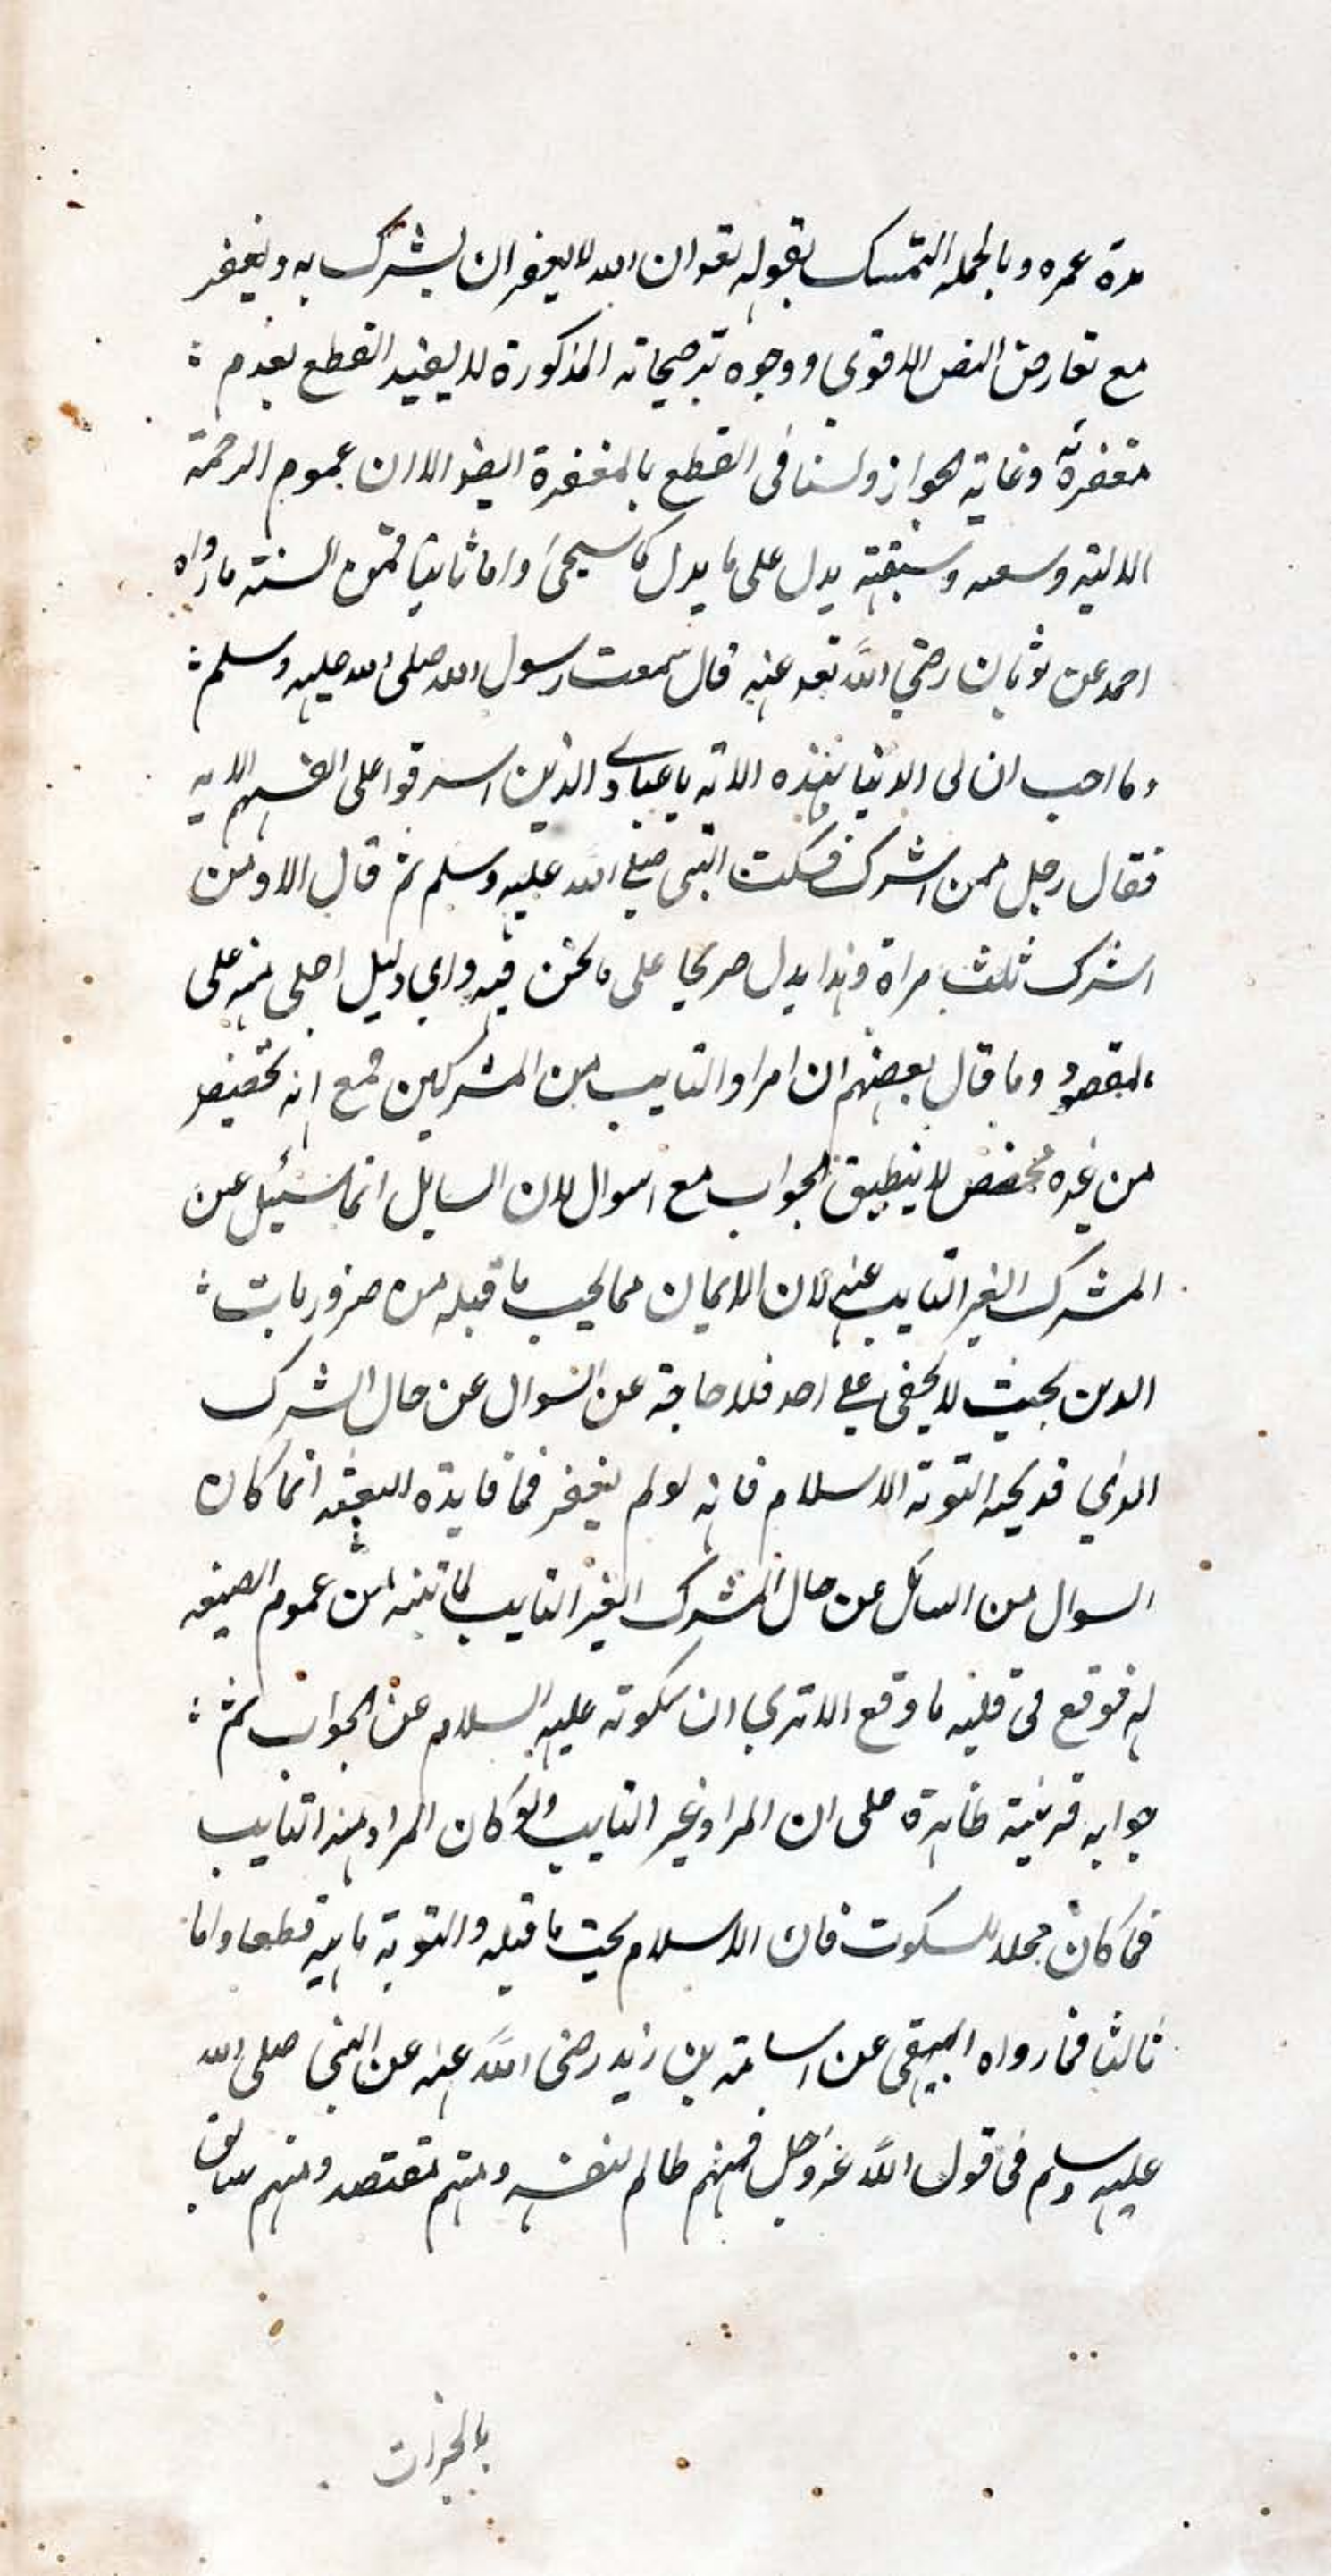 مدة عمره وبالجمله التمسك بقوله تعه ان الله لا يغفر ان يشرك به ويغفر
مع تعارض النص الاقوى ووجوه ترجيحاته المذكورة لا يفيد القطع بعدم
مغفرته وغاية الجواز ولسنا فى القطع بالمغفرة ايضا الا ان عموم الرحمة
الالهية وسعه وسبقته يدل على ما يدل كما سيجئ واما ثانيا فمن السنة ما رواه
احمد عن ثوبان رضي الله تعه عنه قال سمعت رسول الله صلى الله عليه وسلم
وما احب ان لى الدنيا بهذه الاية يا عبادي الذين اسرفوا على انفسهم الايه
فقال رجل فمن اشرك فسكت النبى صلي الله عليه وسلم ثم قال الا ومن
اشرك ثلث مراة وهذا يدل صريحا على ما نحن فيه واي دليل اجلى منه على
المقصود وما قال بعضهم ان المراد التايب من المشركين فمع انه تخصيص
من غيره مخصص لا ينطبق الجواب مع السوال لان السايل انما سئيل عن
المشرك الغير التايب عنه لان الايمان مما يجب ما قبله من ضروريات
الدين بحيث لا يخفى على احد فلا حاجة عن السوال عن حال الشرك
الذي قد يجبه التوبة الاسلام فانه لو لم يغفر فما فايدة البعثه انما كان
السوال من السائل عن حال المشرك الغير التايب لما تنبه من عموم الصيغه
له فوقع فى قلبه ما وقع الا تري ان سكوته عليه السلام عن الجواب ثم
جوابه قرينة ظاهرة على ان المراد غير التايب ولو كان المراد منه التايب
فما كان محلا للسكوت فان الاسلام يجب ما قبله والتوبة ماهية قطعا واما
ثالثا فما رواه البيهقى عن اسامة بن زيد رضى الله عنه عن النبى صلى الله
عليه وسلم فى قول الله عز وجل فمنهم ظالم لنفسه ومنهم مقتصد ومنهم سابق
بالخيرات